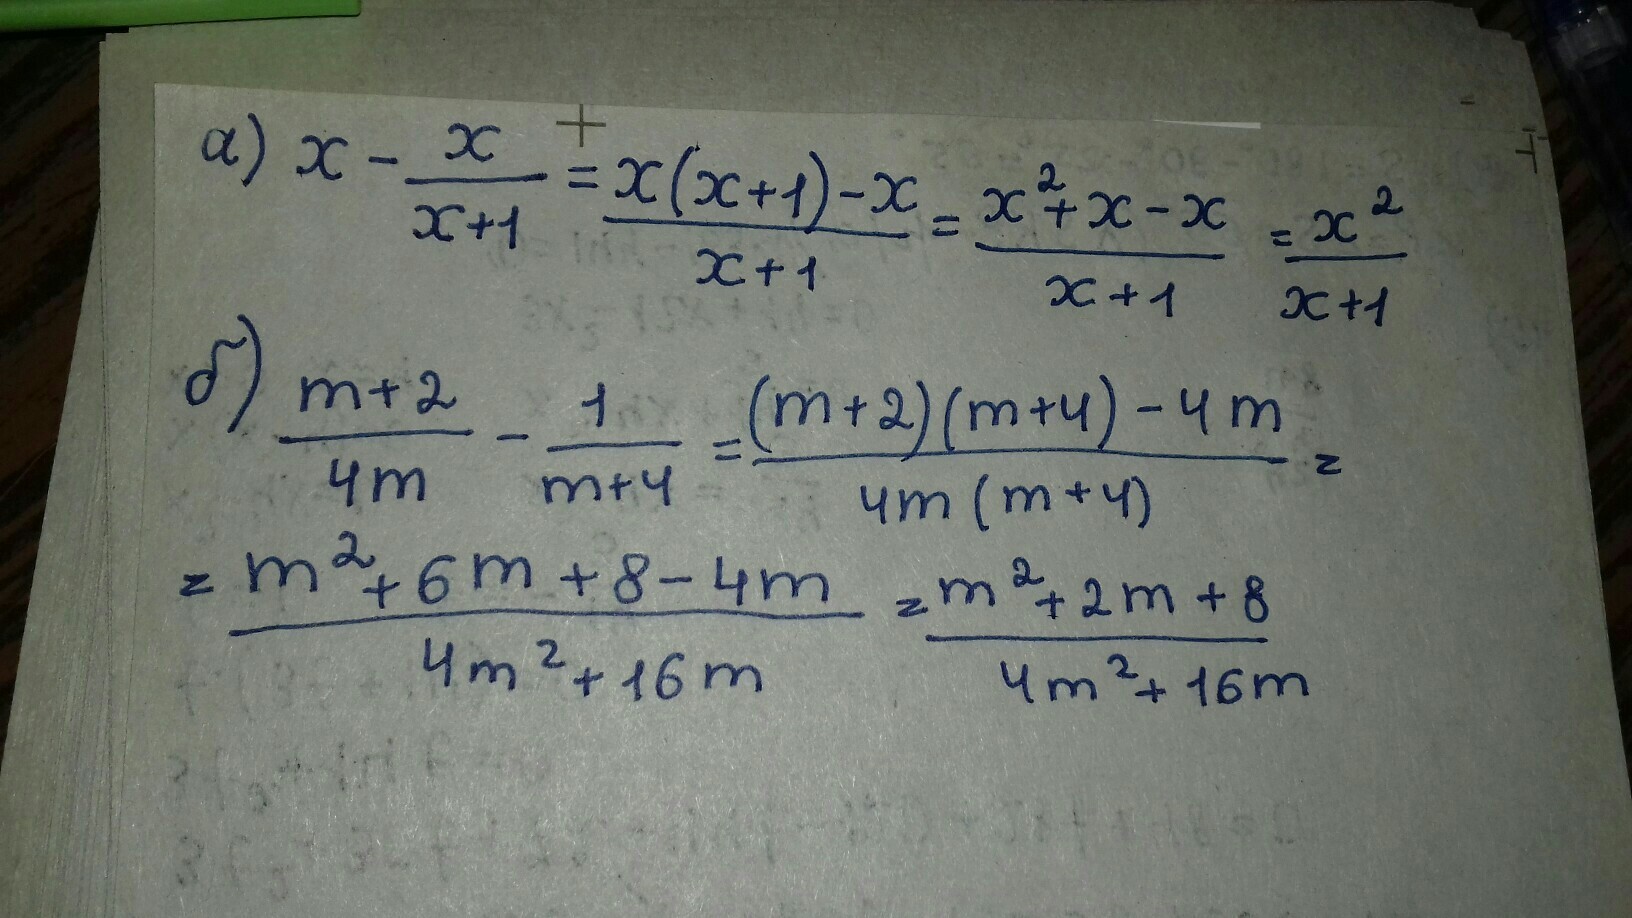 а) x - x/(x+1) = (x(x+1)-x)/(x+1) = (x²+x-x)/(x+1) = x²/(x+1)
б) (m+2)/(4m) - 1/(m+4) = ((m+2)(m+4)-4m)/(4m(m+4)) =
= (m²+6m+8-4m)/(4m²+16m) = (m²+2m+8)/(4m²+16m)